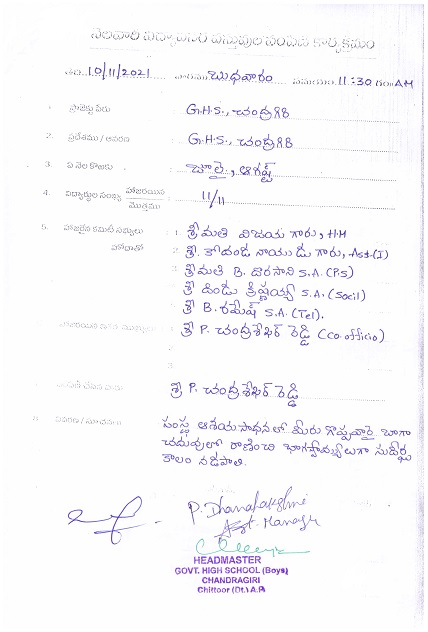 నెలవారి విద్యావసర వస్తువుల పంపిణి కార్యక్రమం
తేది. 10/11/2021 వారము బుధవారం సమయం 11:30 గం AM
1. ప్రాజెక్టు పేరు : G.H.S., చంద్రగిరి
2. ప్రదేశము / ఆవరణ : G.H.S., చంద్రగిరి
3. ఏ నెల కొఱకు : జూలై, ఆగష్ట్
4. విద్యార్థుల సంఖ్య హాజరయిన / మొత్తము : 11/11
5. హాజరైన కమిటీ సభ్యులు : 1. శ్రీమతి విజయ గారు, H.M
హోదాతో 2. శ్రీ కోదండ నాయుడు గారు, Asst.(I)
3. శ్రీమతి B. దొరసాని S.A.(P.S)
శ్రీ దిండు క్రిష్ణయ్య S.A.(Social)
శ్రీ B. రమేష్ S.A.(Tel).
శ్రీ P. చంద్రశేఖర్ రెడ్డి (co.officio)
3.
శ్రీ P. చంద్రశేఖర్ రెడ్డి
సంస్థ ఆశయసాధనలో మీరు గొప్పవారై బాగా
చదువులో రాణించి భాగస్వామ్యులుగా సుదీర్ఘ
కాలం నడపాలి.
P. Dhanalakshmi
Asst. Manager
HEADMASTER
GOVT. HIGH SCHOOL (Boys)
CHANDRAGIRI
Chittoor (Dt.) A.P.